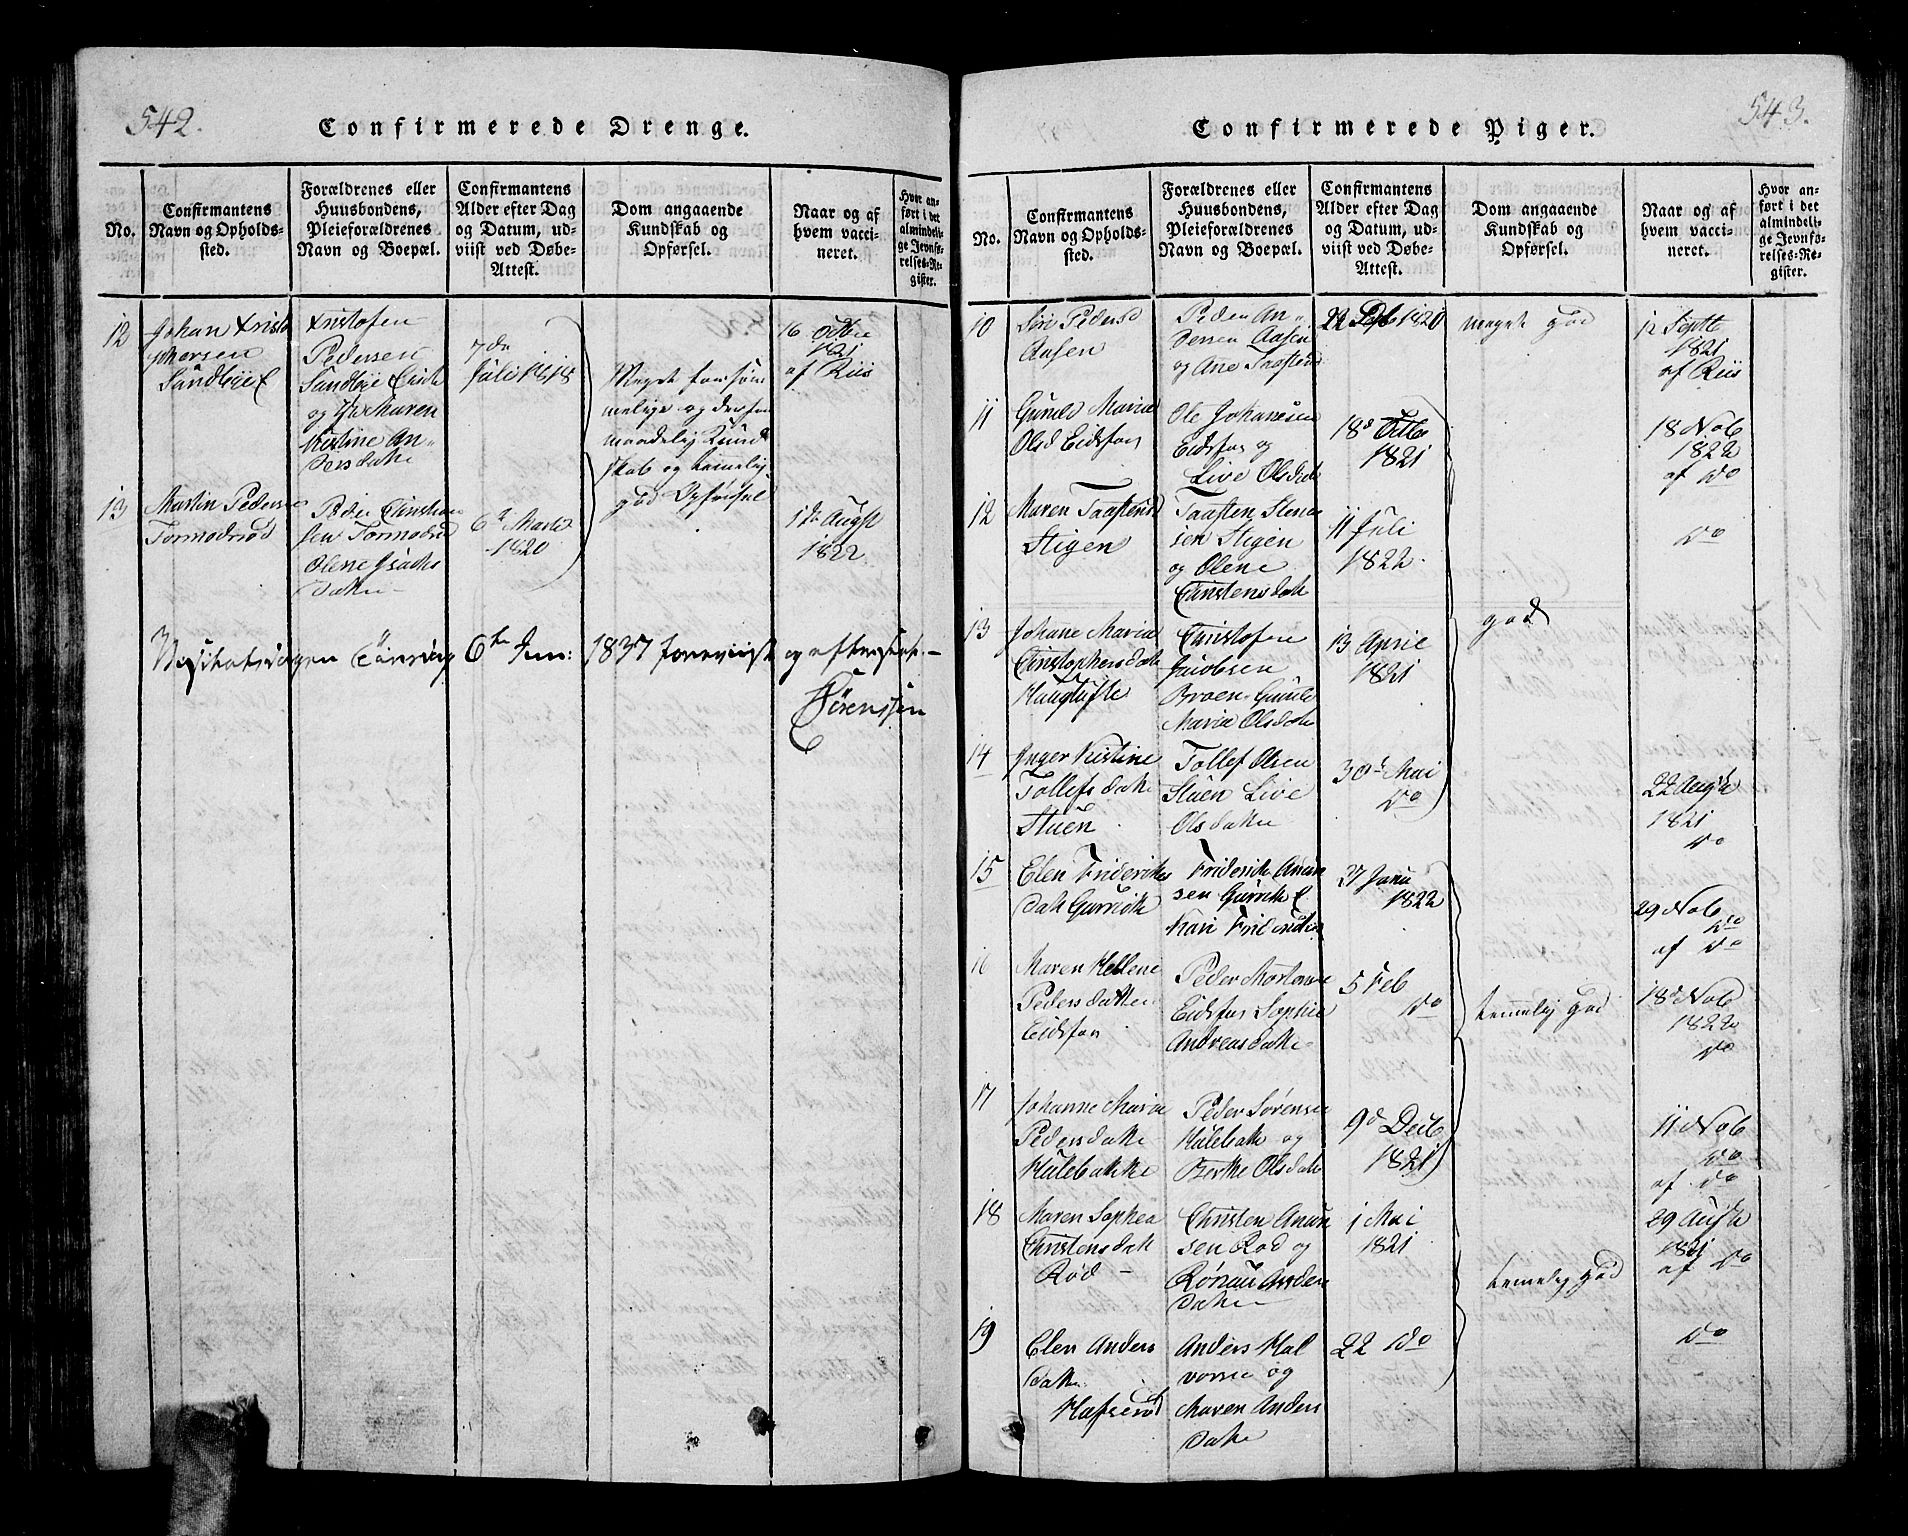 542.
Confirmerede Drenge.
No.
Confirmantens
Navn og Opholds-
sted.
Forældrenes eller
Huusbondens,
Pleieforældrenes
Navn og Boepæl.
Confirmantens
Alder efter Dag
og Datum, ud-
viist ved Døbe-
Attest.
Dom angaaende
Kundskab og
Opførsel.
Naar og af
hvem vacci-
neret.
Hvor an-
ført i det
almindeli-
ge Jevnfø-
relses-Re-
gister.
12
Johan Kristo
phersen
Kristofen
Pedersen
og Maren
Kirstine An-
dersdatte
7de
Julii 1818
Meget forsøm
melige og
maadelig Kund
skab og temmelig
god Opførsel
16 Octbr
1821
af Riis
13
Martin Peders
Tormodrød
Peder Christian
sen Tormodrød
Olene Isacks
datte
6te Marts
1820
1de Augst
1822
6te Jan: 1837 foreviist og efterseet.
Sørenssen
543.
Confirmerede Piger.
No.
Confirmantens
Navn og Opholds-
sted.
Forældrenes eller
Huusbondens,
Pleieforældrenes
Navn og Boepæl.
Confirmantens
Alder efter Dag
og Datum, ud-
viist ved Døbe-
Attest.
Dom angaaende
Kundskab og
Opførsel.
Naar og af
hvem vacci-
neret.
Hvor an-
ført i det
almindeli-
ge Jevnfø-
relses-Re-
gister.
10
Siri Pedersd
Aasen
Peder An-
dersen Aasen
og Ane
22 1820
meget god
12 Septb
1821
af Riis
11
Gunild Maria
Olsd Eidsfos
Ole Johanesen
Eidsfos og
Live Olsdat
18d Octbr
1821
18 Novb
1822
af do
12
Maren Taastensd
Stigen
Taasten Stenes
sen Stigen
og Olene
Christensdatte
11 Juli
1822.
do
13
Johane Maria
Christophersdatte
Haugtufte
Christofen
Jacobsen
Broen Gunild
Maria Olsdatte
13 April
1821
god
14
Inger Kirstine
Tollefsdatte
Stuen
Tollef Olsen
Stuen Live
Olsdatte
30te Mai
do
22 Augste
1821
do
15
Elen Frideriks
datte
Friderich Anun
sen
Kari
27 Janu
1822
29 Novb
do
af do
16
Maren Hellene
Pedersdatte
Eidsfos
Peder Mortense
Eidsfos Sophie
Andreasdatte
5 Feb
do
temmelig god
18de Novb
1822
do
17
Johanne Maria
Pedersdatte
Hulebakke
Peder Sørensen
Hulebak og
Berthe Olsdat
9d Decb
1821
11 Novb
do
af do
18
Maren Sophea
Christensdatt
Rød
Christen Anun
sen Rød og
Rønau Anders
datte
1 Mai
1821
temmelig god
29 Augste
1821
af do
19
Elen Anders
datte
Hafserød
Anders Hal
vorsen og
Maren Anders
datte
22 do
do